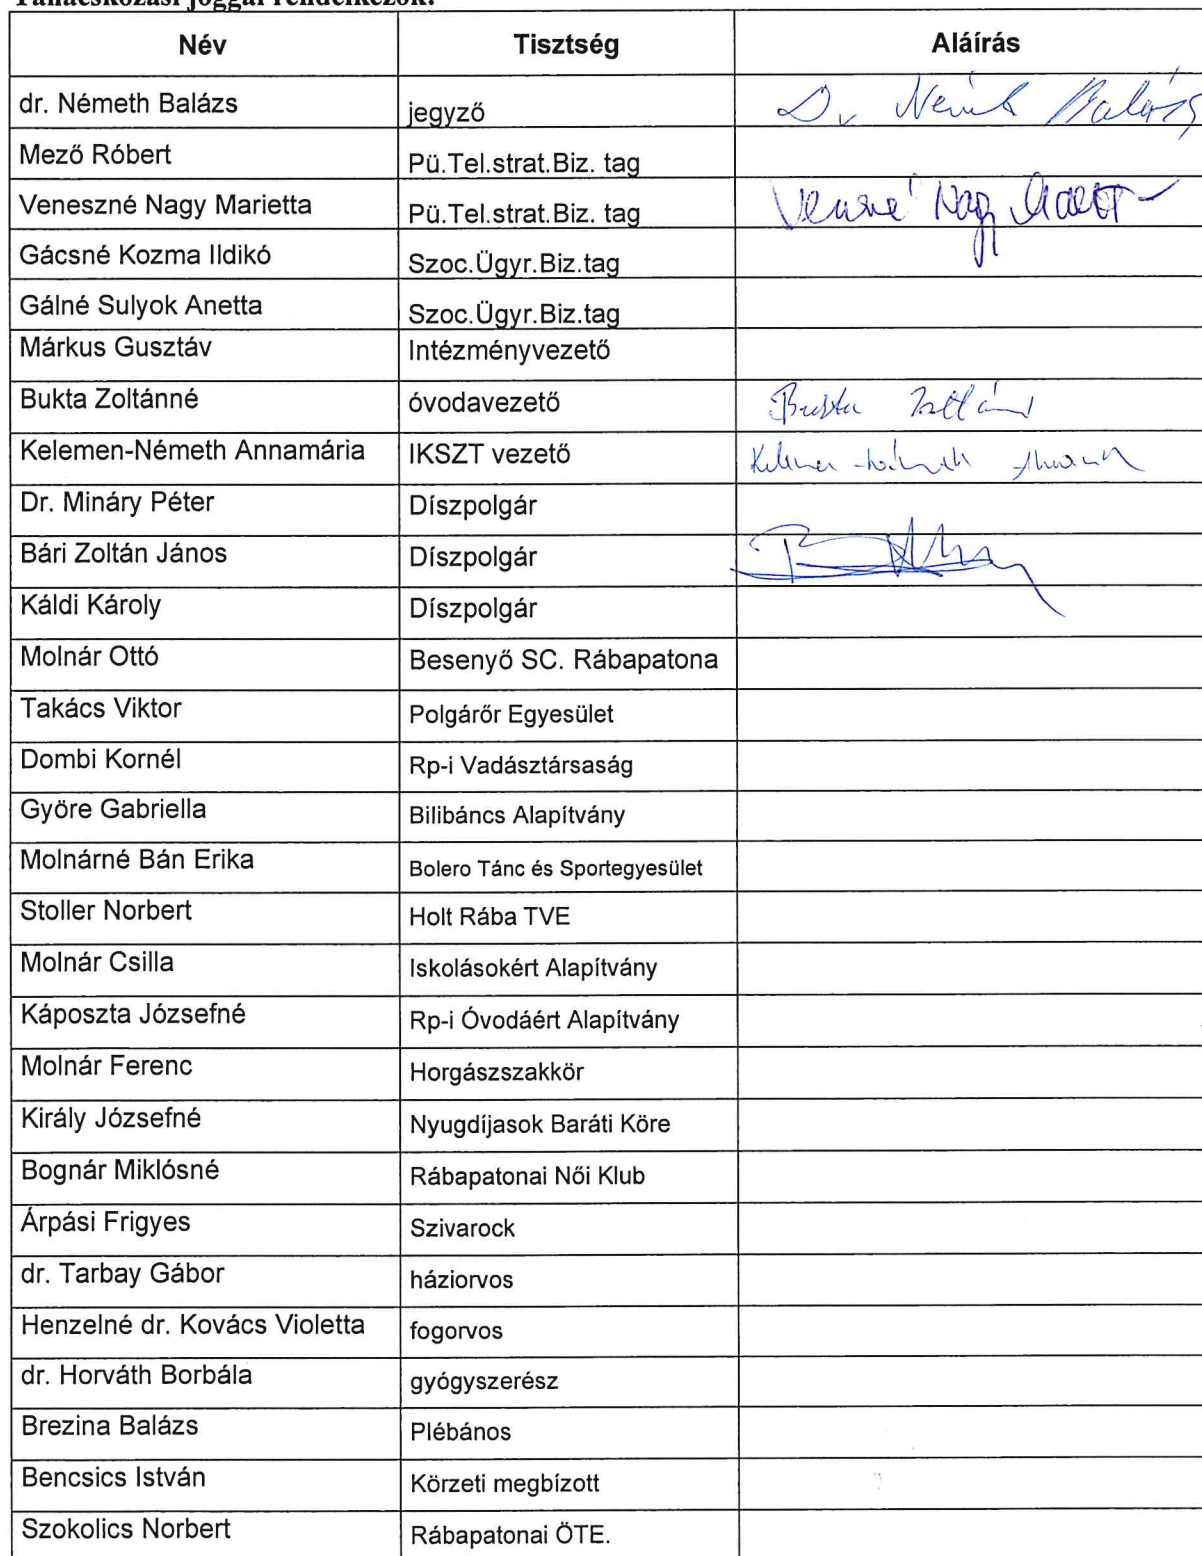 Tanácskozási joggal rendelkezők:
Név Tisztség Aláírás
dr. Németh Balázs jegyző Dr Németh Balázs
Mező Róbert Pü.Tel.strat.Biz. tag
Veneszné Nagy Marietta Pü.Tel.strat.Biz. tag Veneszné Nagy Marietta
Gácsné Kozma Ildikó Szoc.Ügyr.Biz.tag
Gálné Sulyok Anetta Szoc.Ügyr.Biz.tag
Márkus Gusztáv Intézményvezető
Bukta Zoltánné óvodavezető Bukta Zoltánné
Kelemen-Németh Annamária IKSZT vezető Kelemen-Németh Annamária
Dr. Mináry Péter Díszpolgár
Bári Zoltán János Díszpolgár
Káldi Károly Díszpolgár
Molnár Ottó Besenyő SC. Rábapatona
Takács Viktor Polgárőr Egyesület
Dombi Kornél Rp-i Vadásztársaság
Györe Gabriella Bilibáncs Alapítvány
Molnárné Bán Erika Bolero Tánc és Sportegyesület
Stoller Norbert Holt Rába TVE
Molnár Csilla Iskolásokért Alapítvány
Káposzta Józsefné Rp-i Óvodáért Alapítvány
Molnár Ferenc Horgászszakkör
Király Józsefné Nyugdíjasok Baráti Köre
Bognár Miklósné Rábapatonai Női Klub
Árpási Frigyes Szivarock
dr. Tarbay Gábor háziorvos
Henzelné dr. Kovács Violetta fogorvos
dr. Horváth Borbála gyógyszerész
Brezina Balázs Plébános
Bencsics István Körzeti megbízott
Szokolics Norbert Rábapatonai ÖTE.